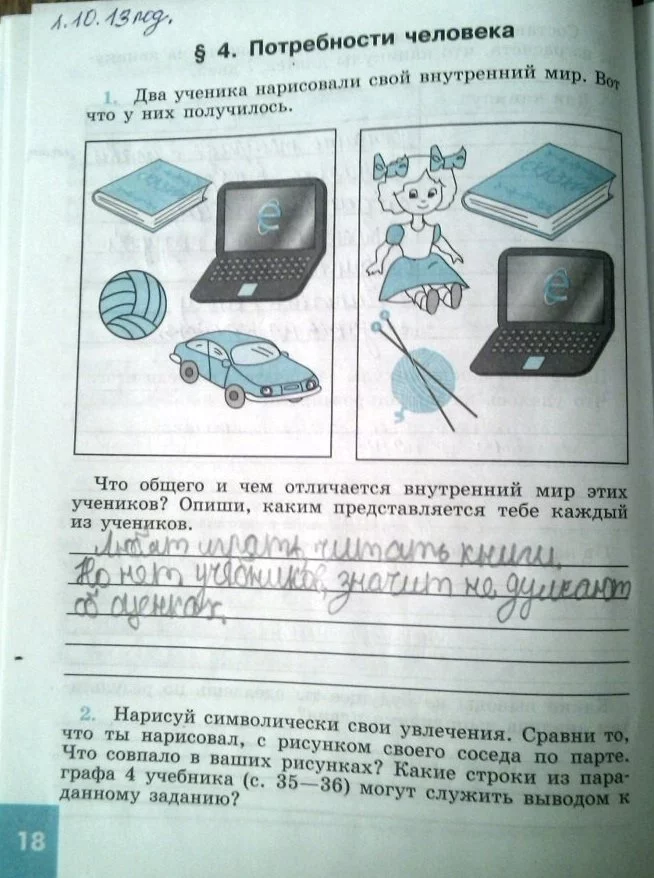 1.10.13 год.
§ 4. Потребности человека
1. Два ученика нарисовали свой внутренний мир. Вот
что у них получилось.
сказки
e
СКАЗКИ
e
Что общего и чем отличается внутренний мир этих
учеников? Опиши, каким представляется тебе каждый
из учеников.
Любят играть, читать книги.
Но нет учебников, значит не думают
об оценках.
2. Нарисуй символически свои увлечения. Сравни то,
что ты нарисовал, с рисунком своего соседа по парте.
Что совпало в ваших рисунках? Какие строки из пара-
графа 4 учебника (с. 35—36) могут служить выводом к
данному заданию?
18